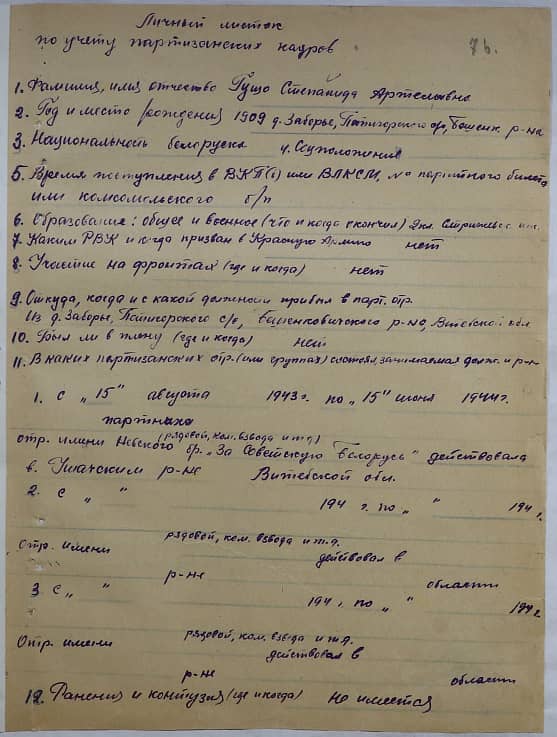 Личный листок
по учету партизанских кадров
7б.
1. Фамилия, имя, отчество Гущо Степанида Артемовна
2. Год и место рождения 1909 д. Заборье, Пятигорского с/с, Бешенк. р-на
3. Национальность белоруска 4. Соцположение
5. Время поступления в ВКП(б) или ВЛКСМ, № партийного билета
или комсомольского б/п
6. Образование: общее и военное (что и когда окончил) 2кл.
7. Каким РВК и когда призван в Красную Армию нет
8. Участие на фронтах (где и когда) нет
9. Откуда, когда и с какой должности прибыл в парт. отр.
Из д. Заборье, Пятигорского с/с, Бешенковичского р-на, Витебской обл
10. Был ли в плену (где и когда) нет
11. В каких партизанских отр. (или группах) состоял, занимаемая должн. и р-н
1. с „15" августа 1943 г. по „15" июня 1944 г.
партизанка
(рядовой, ком. взвода и т.д)
отр. имени Невского бр. „За Советскую Белорусь" действовала
в Ушачским р-не Витебской обл.
2. с „ " 194 г. по „ " 194 г.
рядовой, ком. взвода и т.д.
Отр. имени действовал в
р-не области
3. с „ " 194 г. по „ " 194 г.
рядовой, ком. взвода и т.д.
Отр. имени действовал в
р-не области
12. Ранения и контузия (где и когда) не имеется